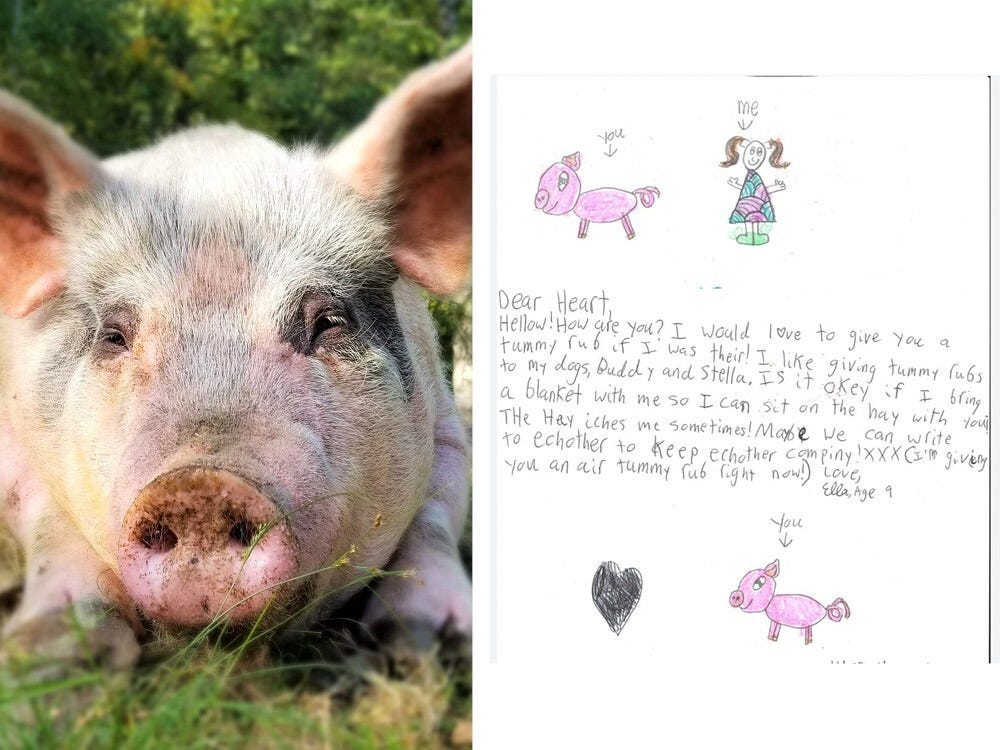 me
you
Dear Heart,
Hellow! How are you? I would love to give you a
tummy rub if I was their! I like giving tummy rubs
to my dogs, Buddy and Stella. Is it okey if I bring
a blanket with me so I can sit on the hay with you?
THe Hay iches me sometimes! Maybe we can write
to echother to keep echother compiny! XXX (I'm giveing
you an air tummy rub right now!) Love,
Ella, Age 9
you